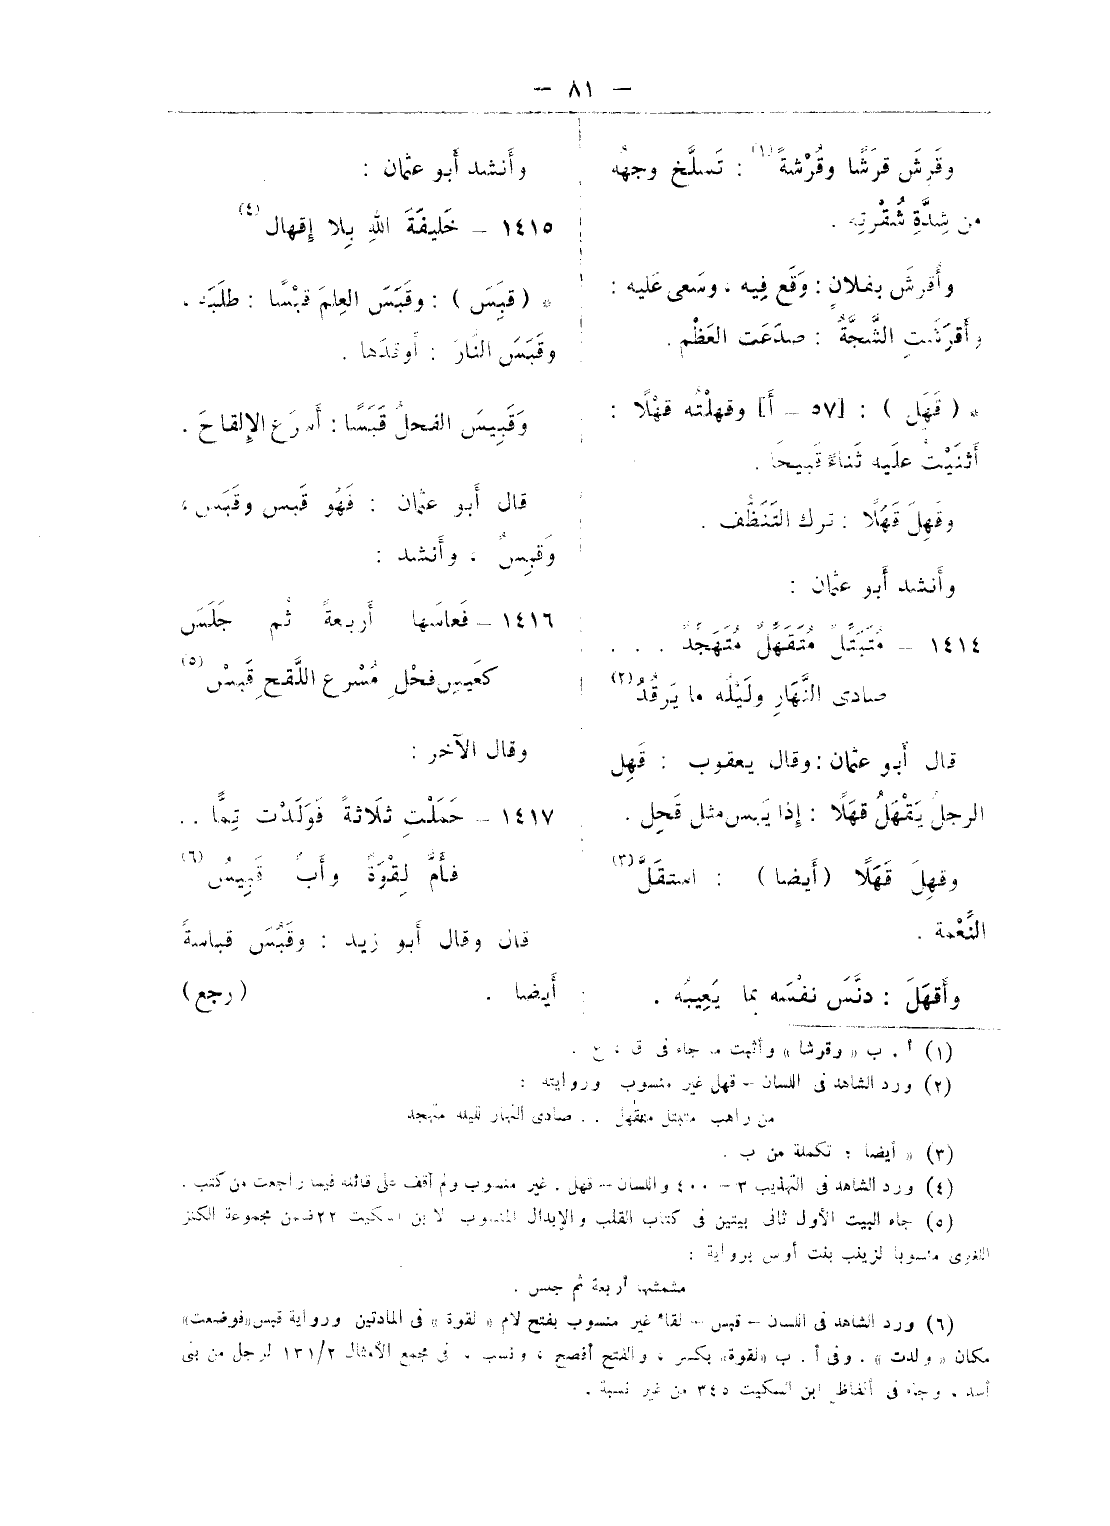 — ٨١ —
وقَرِشَ قرَشًا وقُرْشةً(١) : تَسلَّخ وجهُه
من شِدَّةِ شُقْرتِه .
وأَقرشَ بفلانٍ : وَقَع فِيه ، وسَعى عَليه :
وأَقرَشَتِ الشَّجَّةُ : صدَعَت العَظْم .
* ( قَهَل ) : [٥٧ – أ] وقهلْتُه قهْلًا :
أَثنَيْتُ علَيه ثَناءً قَبيحًا .
وقهِلَ قَهَلًا : ترك التَنَظُّف .
وأَنشد أَبو عثمان :
١٤١٤ – مُتَبَتِّلٌ مُتَقَهِّلٌ مُتَهَجِّدٌ . . .
صادى النَّهَارِ ولَيْلُه ما يَرقُدُ(٢)
قال أَبو عثمان : وقال يعقوب : قَهِل
الرجلُ يَقْهَلُ قهَلًا : إذا يَبس مثل قَحِل .
وقهِلَ قَهَلًا (أَيضا) : استقلَّ(٣)
النِّعْمة .
وأَقهَلَ : دنَّسَ نفْسَه بما يَعِيبُه .
وأَنشد أَبو عثمان :
١٤١٥ – خَليفَةَ اللهِ بِلا إِقهال(٤)
* ( قبَس ) : وقَبَسَ العِلمَ قبْسًا : طلَبَه ،
وقَبَسَ النَّارَ : أَوقدَها .
وَقَبِيسَ الفحلُ قَبَسًا : أَسرَع الإِلقاحَ .
قال أَبو عثمان : فَهُو قَبس وقَبَس ،
وَقبِسٌ ، وأَنشد :
١٤١٦ – فَعاسَها أَربعةً ثُم جَلَسَ
كعَيسِ فحْلِ مُسْرِعِ اللَّقحِ قَبِسْ(٥)
وقال الآخر :
١٤١٧ – حَمَلْتِ ثلَاثةً فَولَدْت تِمًّا . .
فأُمٌّ لِقْوَةٌ وأَبٌ قَبِيسُ(٦)
قال وقال أَبو زيد : وقَبُسَ قباسةً
أَيضا . (رجع)
(١) أ . ب « وقرشا » وأثبت ما جاء فى ق ، ع .
(٢) ورد الشاهد فى اللسان – قهل غير منسوب وروايته :
من راهب متبتل متقهل . . صادى النهار لليله متهجد
(٣) « أيضا » تكملة من ب .
(٤) ورد الشاهد فى التهذيب ٣ – ٤٠٠ واللسان – قهل . غير منسوب ولم أقف على قائله فيما راجعت من كتب .
(٥) جاء البيت الأول ثانى بيتين فى كتاب القلب والإبدال المنسوب لابن السكيت ٢٢ ضمن مجموعة الكنز
اللغوى منسوبا لزينب بنت أوس برواية :
مشمشها أربعة ثم جلس .
(٦) ورد الشاهد فى اللسان – قبس – لقا غير منسوب بفتح لام « لقوة » فى المادتين ورواية قبس «فوضعت»
مكان « ولدت » . وفى أ . ب «لقوة» بكسر ، والفتح أفصح ، ونسب ، فى مجمع الأمثال ١٣١/٢ لرجل من بنى
أسد ، وجاء فى ألفاظ ابن السكيت ٣٤٥ من غير نسبة .